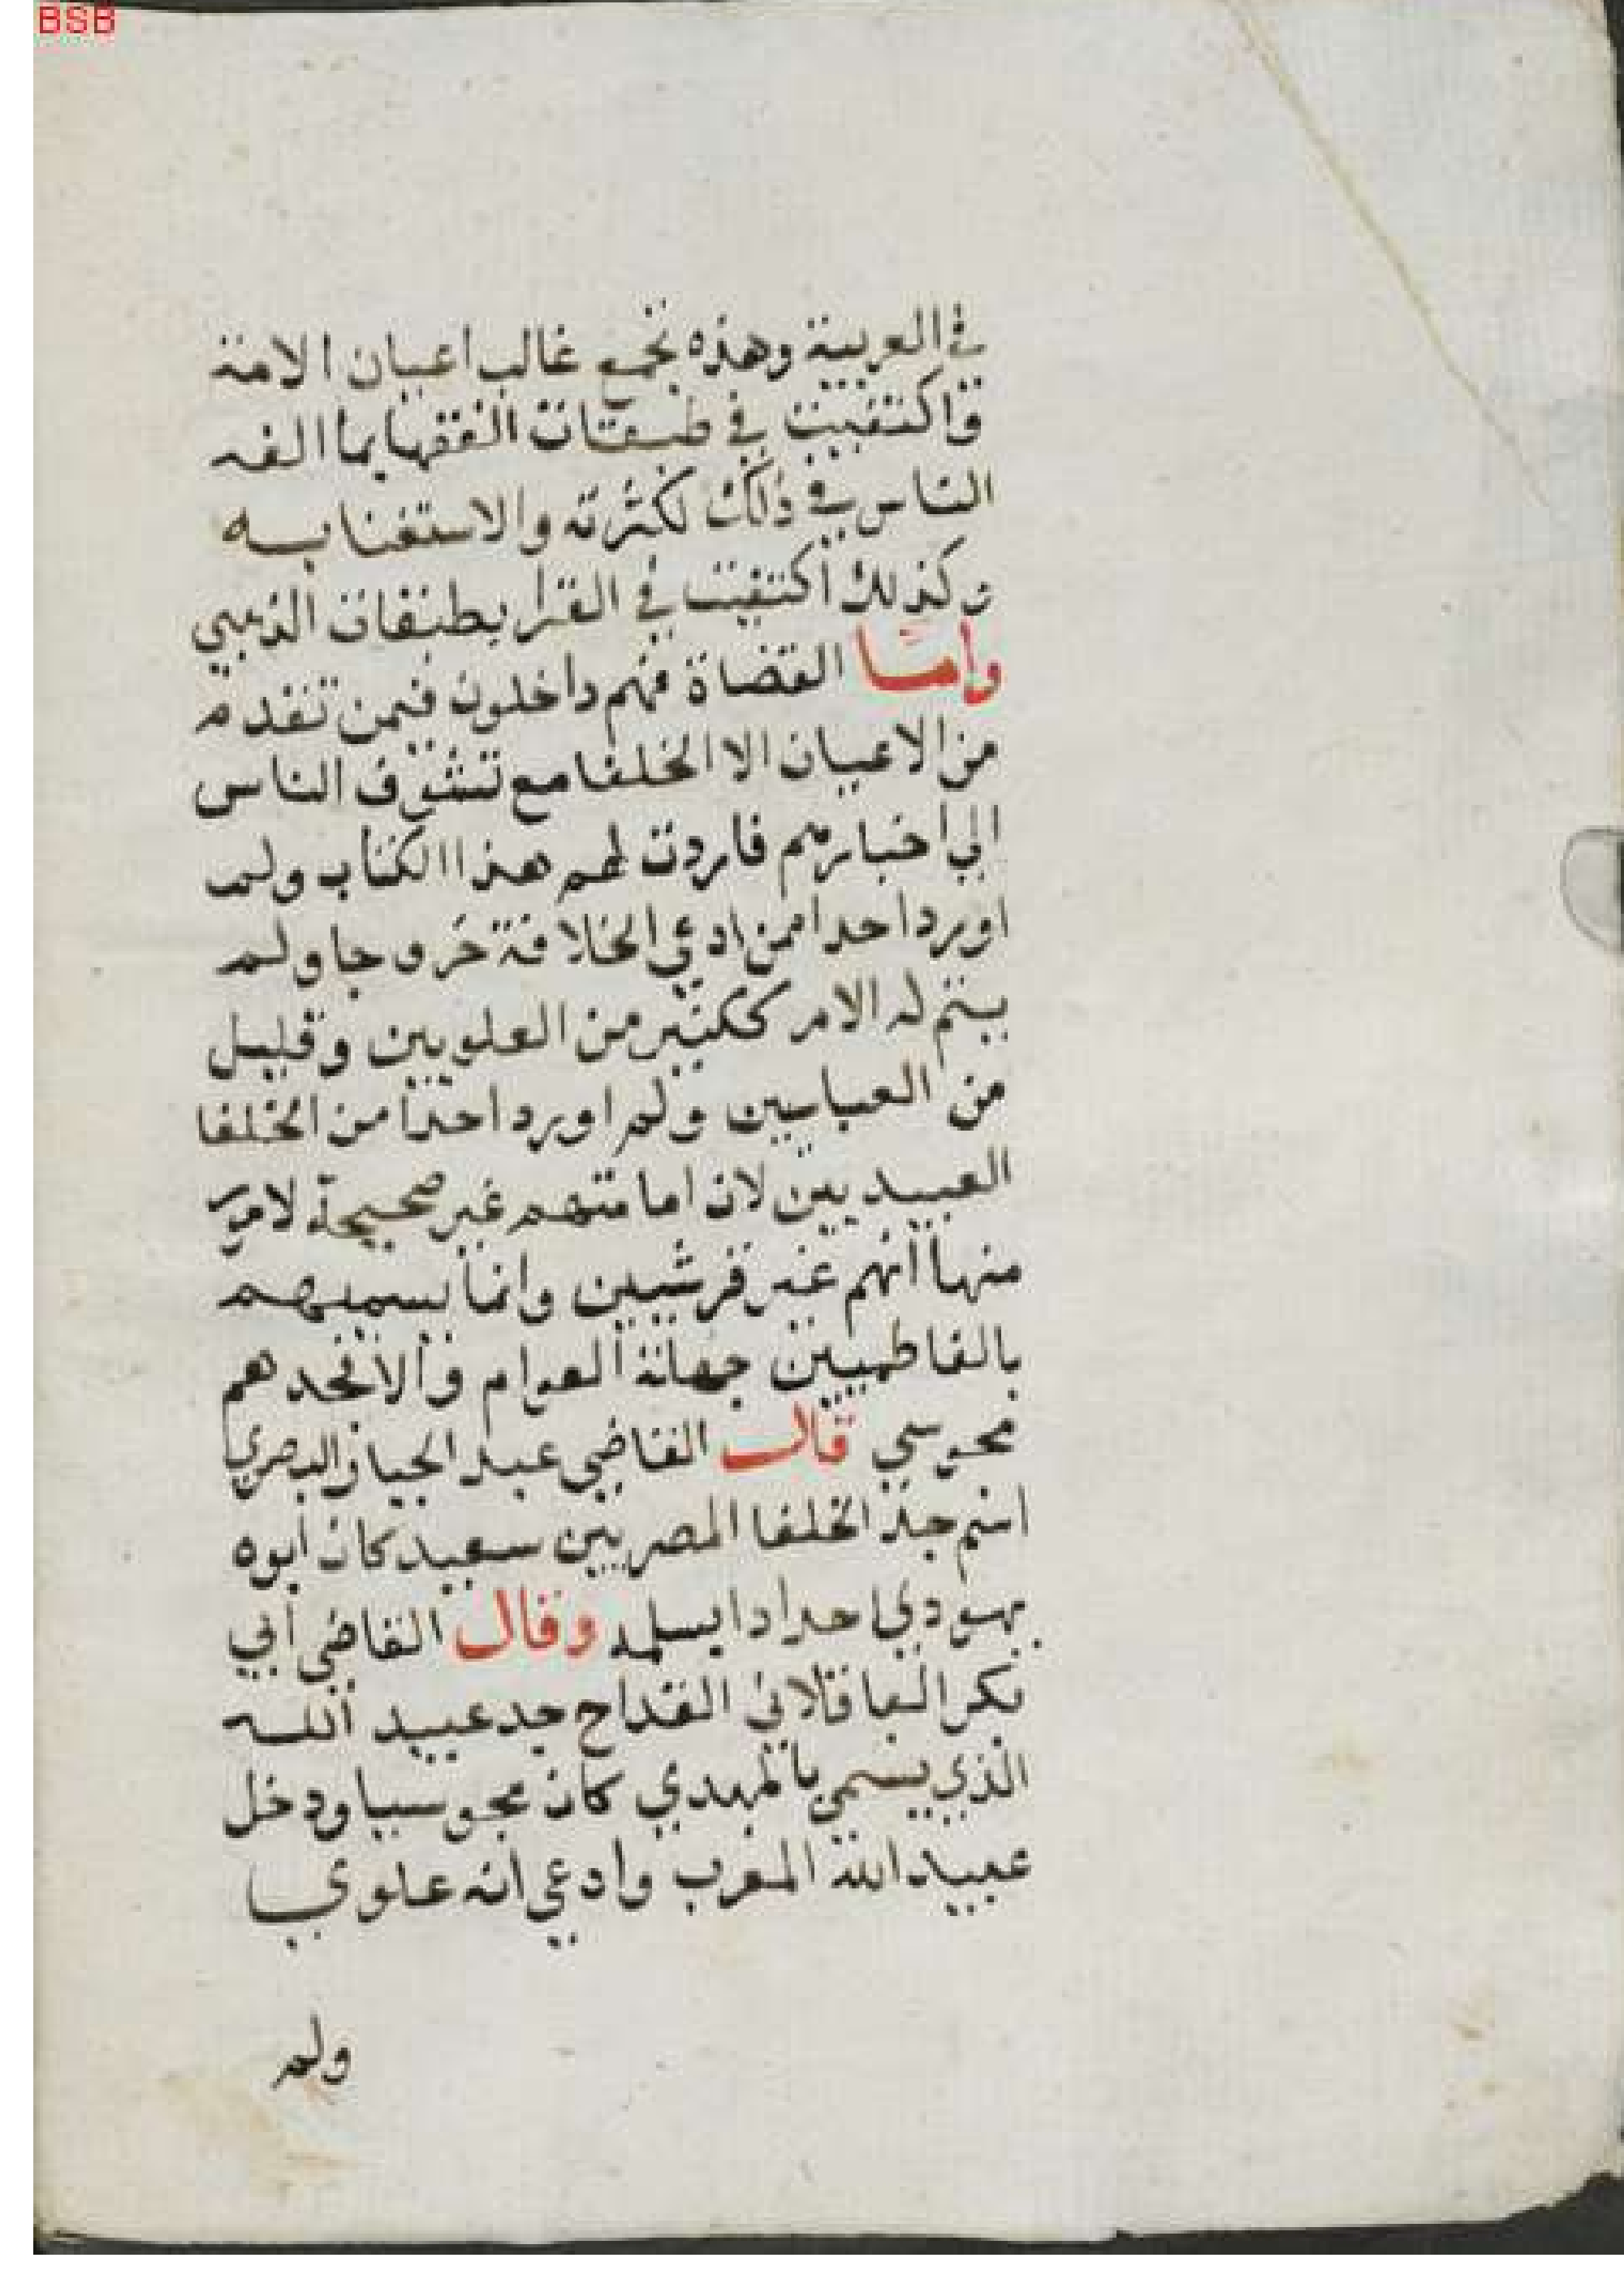 BSB
في العربية وهذه تجمع غالب اعيان الامة
واكتفيت في طبقات الفقها بما الفه
الناس في ذلك لكثرته والاستغنا به
وكذلك اكتفيت في القرا بطبقات الذهبي
واما القضاة فهم داخلون فيمن تقدم
من الاعيان الا الخلفا مع تشوف الناس
الي اخبارهم فاردت لهم هذا الكتاب ولم
اورد احدا ممن ادعي الخلافة خروجا ولم
يتم له الامر ككثير من العلويين وقليل
من العباسين ولم اورد احدا من الخلفا
العبيديين لان امامتهم غير صحيحة لامور
منها انهم غير قرشيين وانما يسميهم
بالفاطميين جهلة العوام والا فجدهم
مجوسي قال القاضي عبد الجبار البصري
اسم جد الخلفا المصريين سعيد كان ابوه
يهودي احدادا بسلمه وقال القاضي ابي
بكر الباقلاني القداح جد عبيد الله
الذي يسمي بالمهدي كان مجوسيا ودخل
عبيد الله المغرب وادعي انه علوي
ولم